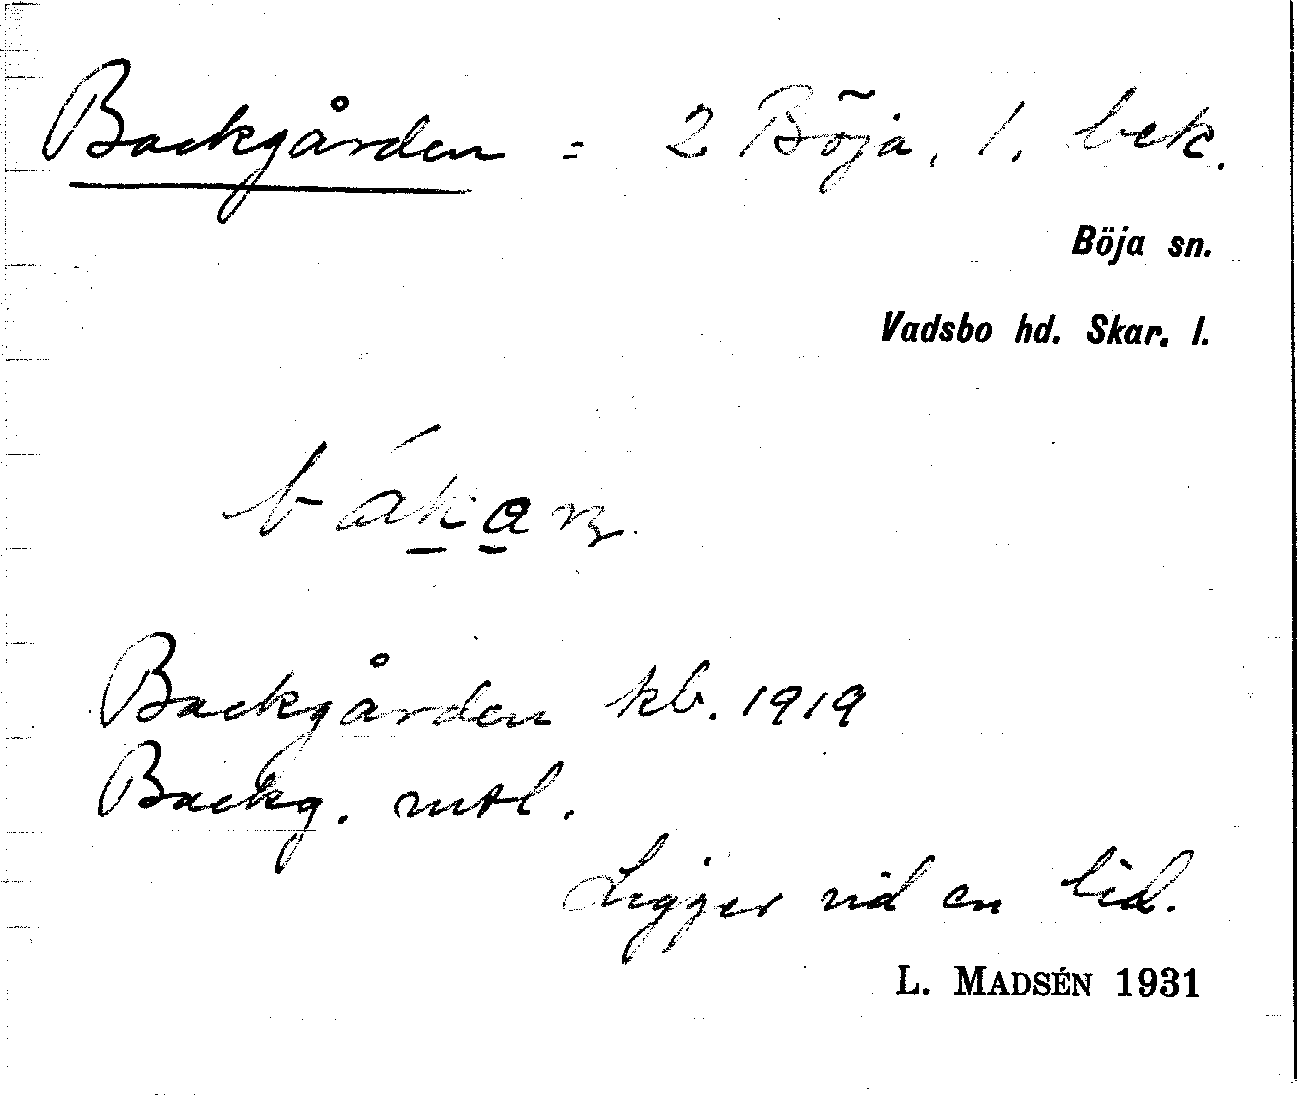 Backgården = 2 Böja, 1. bek.
Böja sn.
Vadsbo hd. Skar. l.
Backgården kb. 1919
Backg. mtl.
Ligger vid en lid.
L. MADSÉN 1931